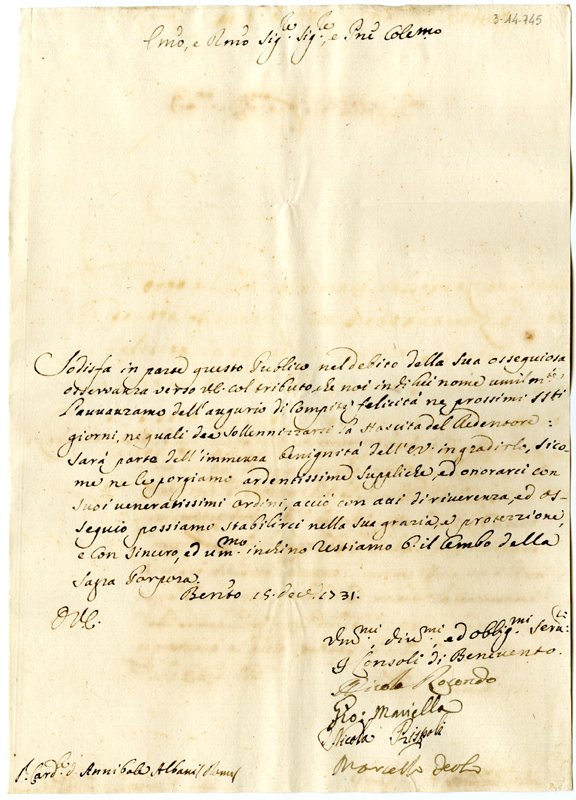 3-14-745
Emo, e Rmo Sigre Sigre, e Prne Colemo
Sodisfa in parte questo Publico nel debito della sua ossequiosa
osservanza verso VE. col tributo, che noi in di lui nome umilmte
l'avvanzamo dell'augurio di compite felicità ne prossimi SSti
giorni, ne quali dee sollennizzarsi la Nascita del Redentore:
sarà parte dell'immenza benignità dell'EV. in gradirlo, sico-
me ne le porgiamo ardentissime suppliche, ed onorarci con
suoi veneratissimi ordini, acciò con atti di riverenza, ed os-
sequio possiamo stabilirci nella sua grazia, e protezzione,
e con sincero, ed umo inchino restiamo b. il lembo della
sagra Porpora.
Bento 15. Dece. 1731.
DVE.
Vmmi, divmi, ed obligmi servri
I Consoli di Benevento.
Nicola
Gio: Maniella
Nicola Rispoli
Marcello
Sr. Cardle. d. Annibale Albani Roma